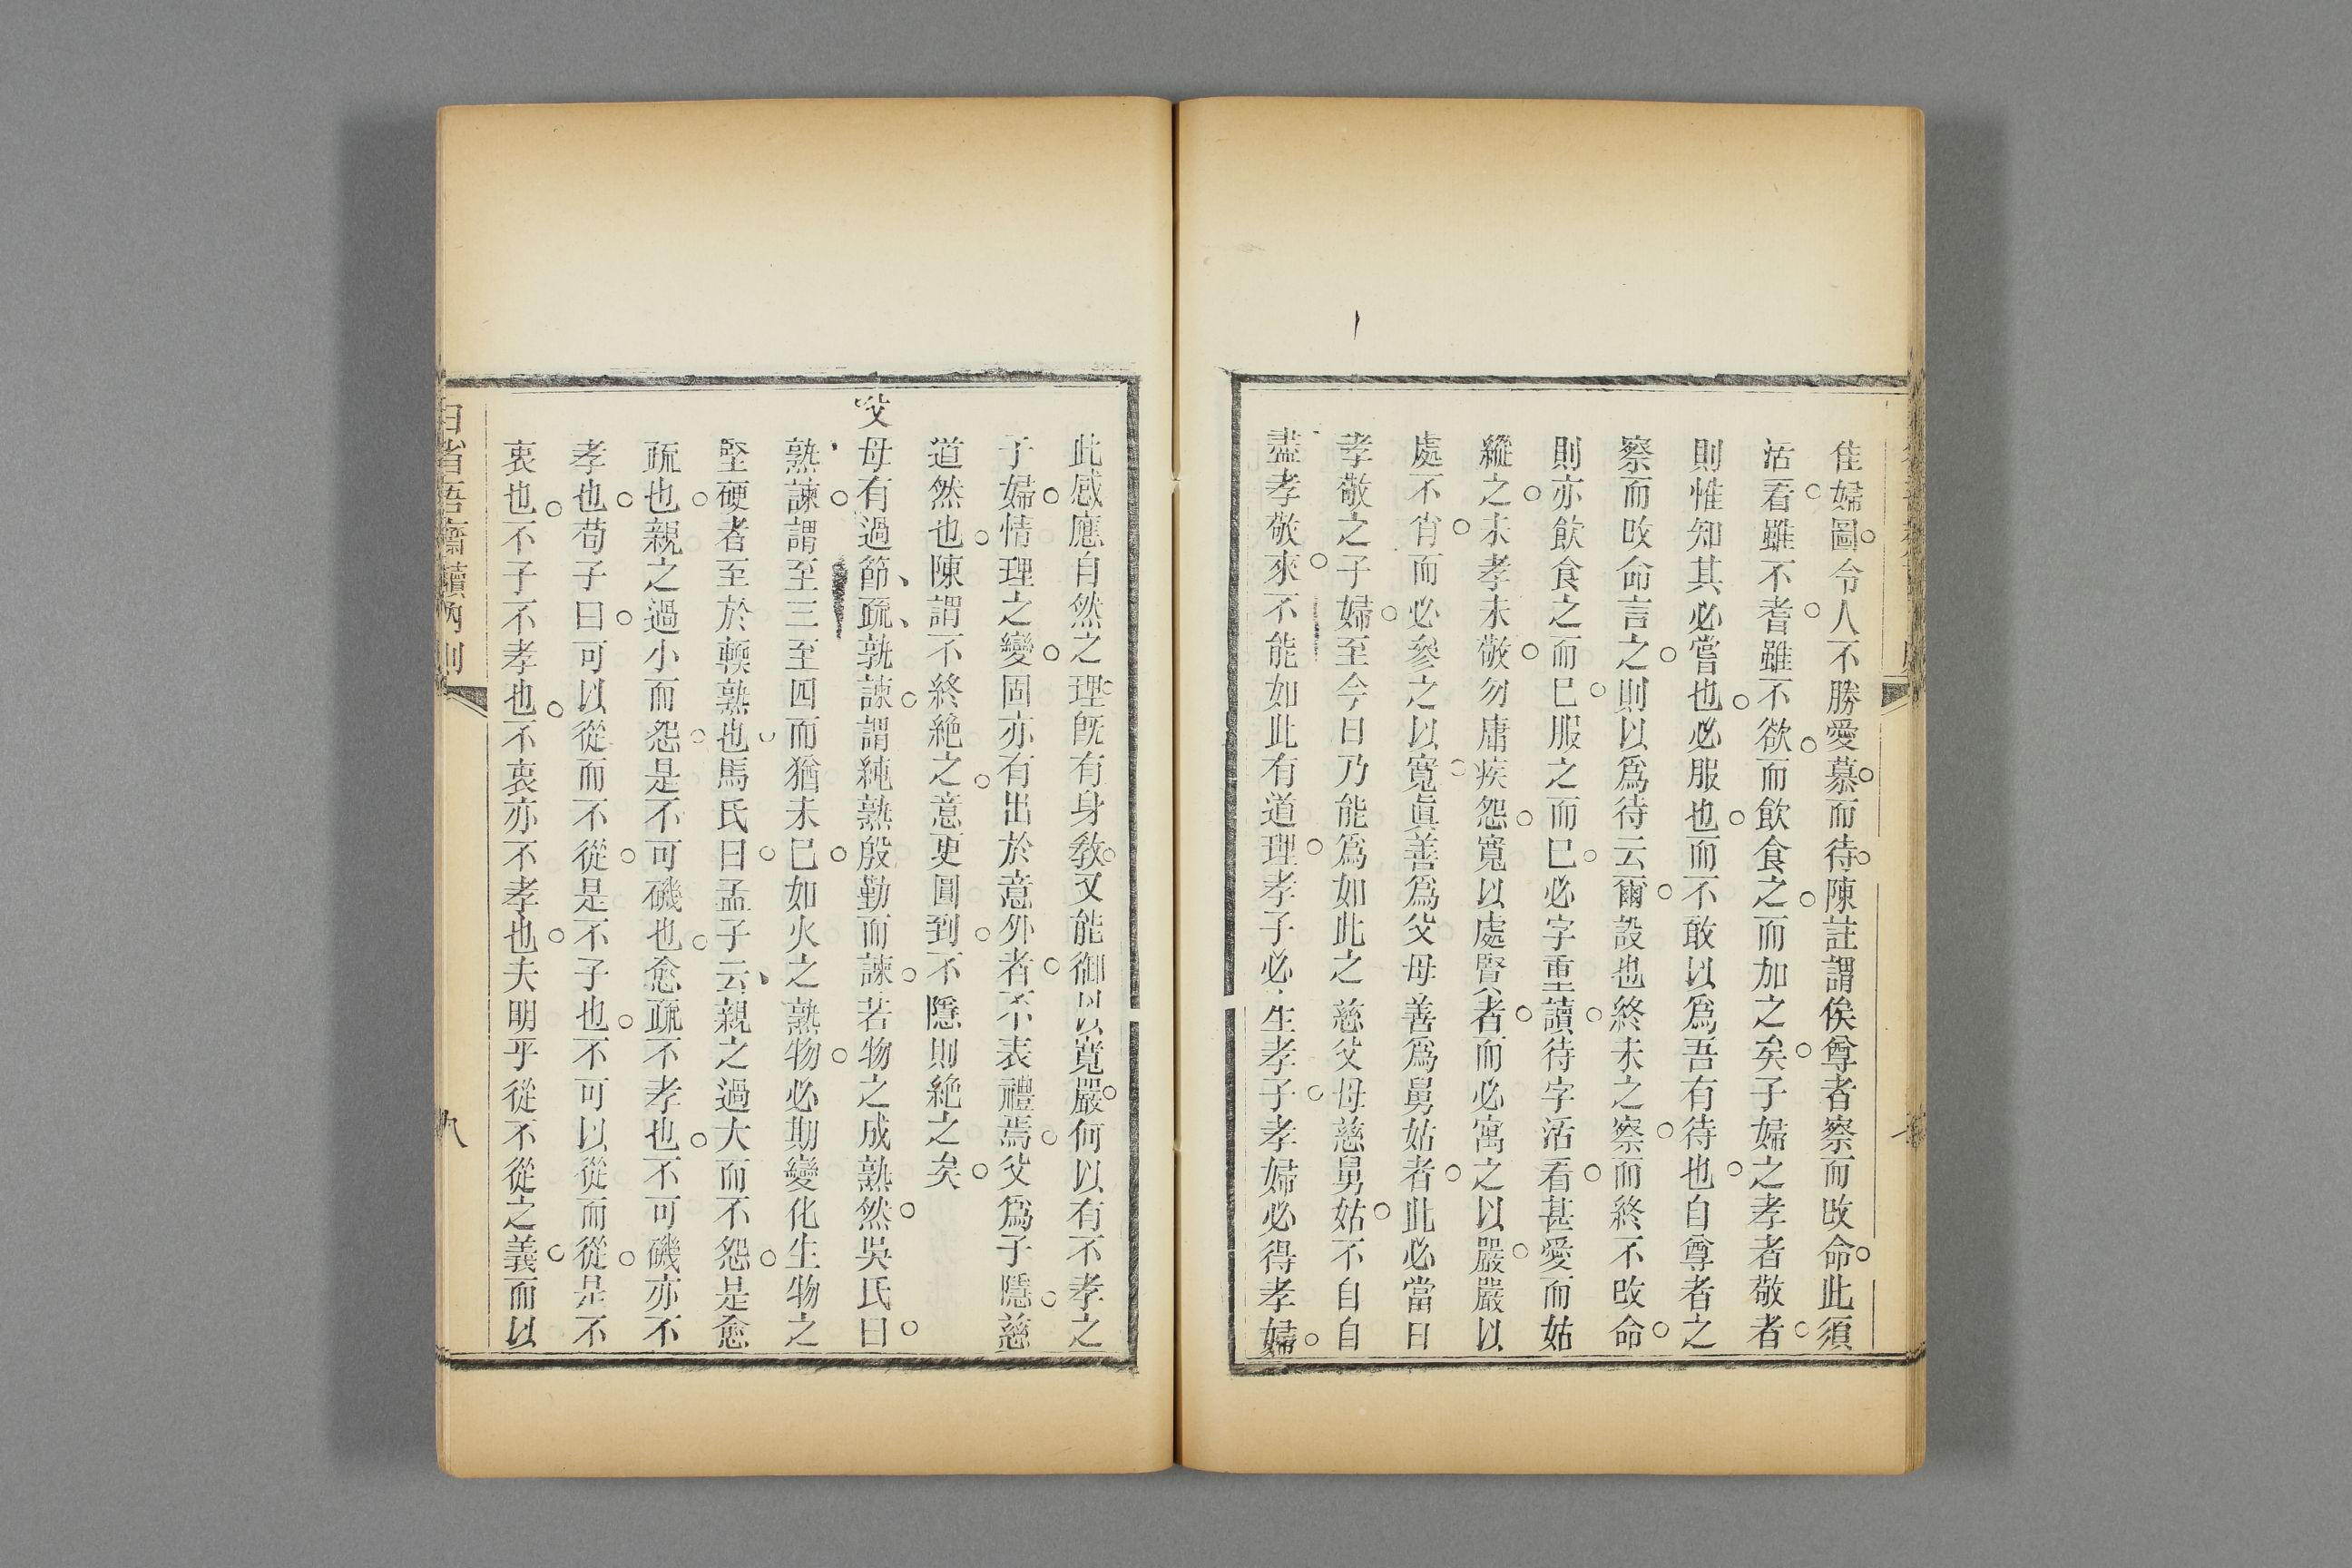 佳婦圖令人不勝愛慕而待陳註謂俟尊者察而改命此須
活看雖不耆雖不欲而飲食之而加之矣子婦之孝者敬者
則惟知其必嘗也必服也而不敢以爲吾有待也自尊者之
察而改命言之則以爲待云爾設也終未之察而終不改命
則亦飲食之而已服之而已必字重讀待字活看甚愛而姑
縱之未孝未敬勿庸疾怨寬以處賢者而必寓之以嚴嚴以
處不肖而必參之以寬眞善爲父母善爲舅姑者此必當日
孝敬之子婦至今日乃能爲如此之慈父母慈舅姑不自自
盡孝敬來不能如此有道理孝子必生孝子孝婦必得孝婦
此感應自然之理旣有身敎又能御以寬嚴何以有不孝之
子婦情理之變固亦有出於意外者不表禮焉父爲子隱慈
道然也陳謂不終絶之意更圓到不隱則絶之矣
父母有過節疏孰諫謂純熟殷勤而諫若物之成熟然吳氏曰
熟諫謂至三至四而猶未已如火之熟物必期變化生物之
堅硬者至於輭熟也馬氏曰孟子云親之過大而不怨是愈
疏也親之過小而怨是不可磯也愈疏不孝也不可磯亦不
孝也荀子曰可以從而不從是不子也不可以從而從是不
衷也不子不孝也不衷亦不孝也夫明乎從不從之義而以
日省吾齋讀內則
九